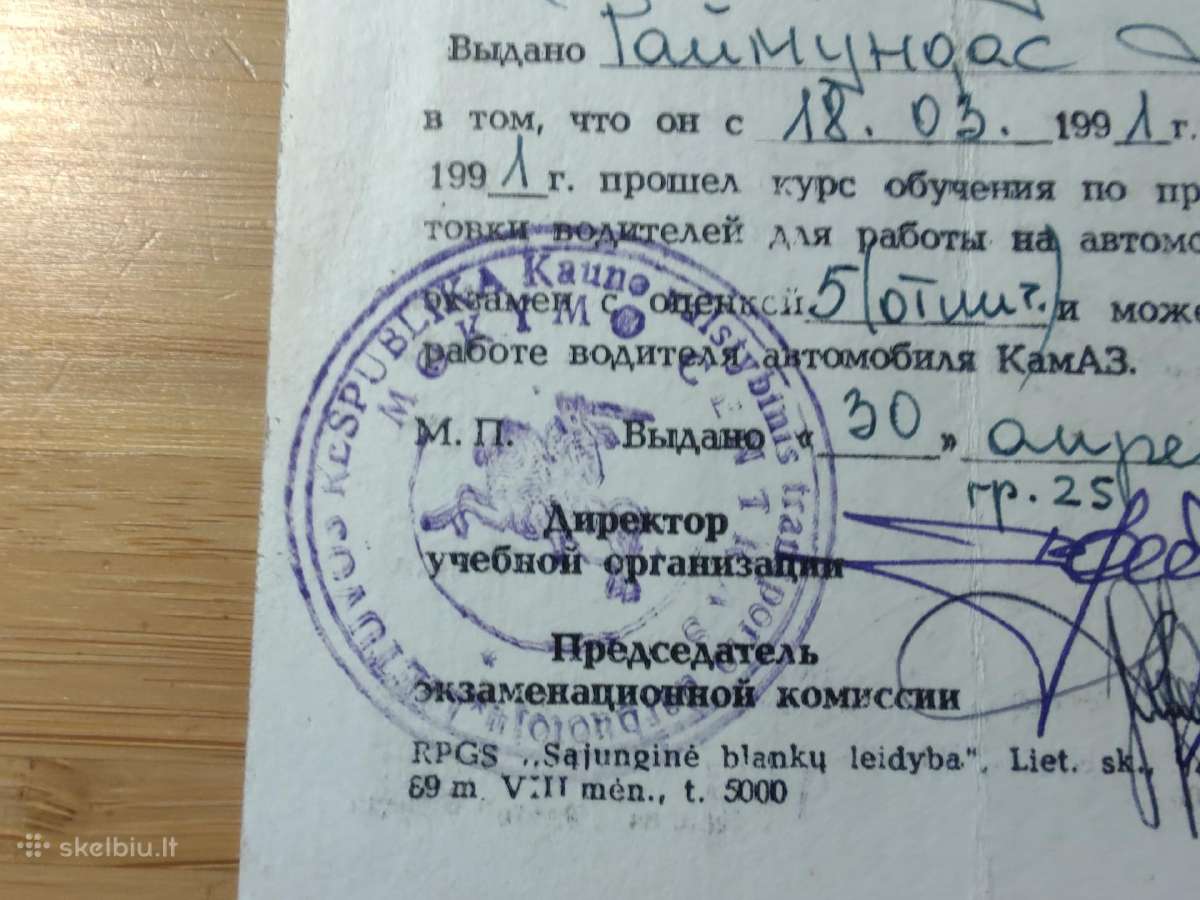 Выдано Раймундас
в том, что он с 18. 03. 1991 г.
1991 г. прошел курс обучения по пр
товки водителей для работы на автомо
экзамен с оценкой 5 (отлич.) и може
работе водителя автомобиля КамАЗ.
М. П. Выдано « 30 » апре
гр. 25
Директор
учебной организации
Председатель
экзаменационной комиссии
RPGS „Sąjunginė blankų leidyba“. Liet. sk.,
89 m VIII mėn., t. 5000
LIETUVOS RESPUBLIKA Kauno valstybinis transporto
MOKYMO CENTRAS
skelbiu.lt